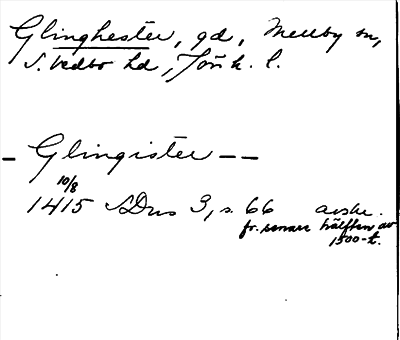 Glinghester, gd, Mellby sn,
S. Vedbo hd, Jönk. l.
– Glingister – –
10/8
1415 SDns 3, s. 66 avskr.
fr. senare hälften av
1500-t.